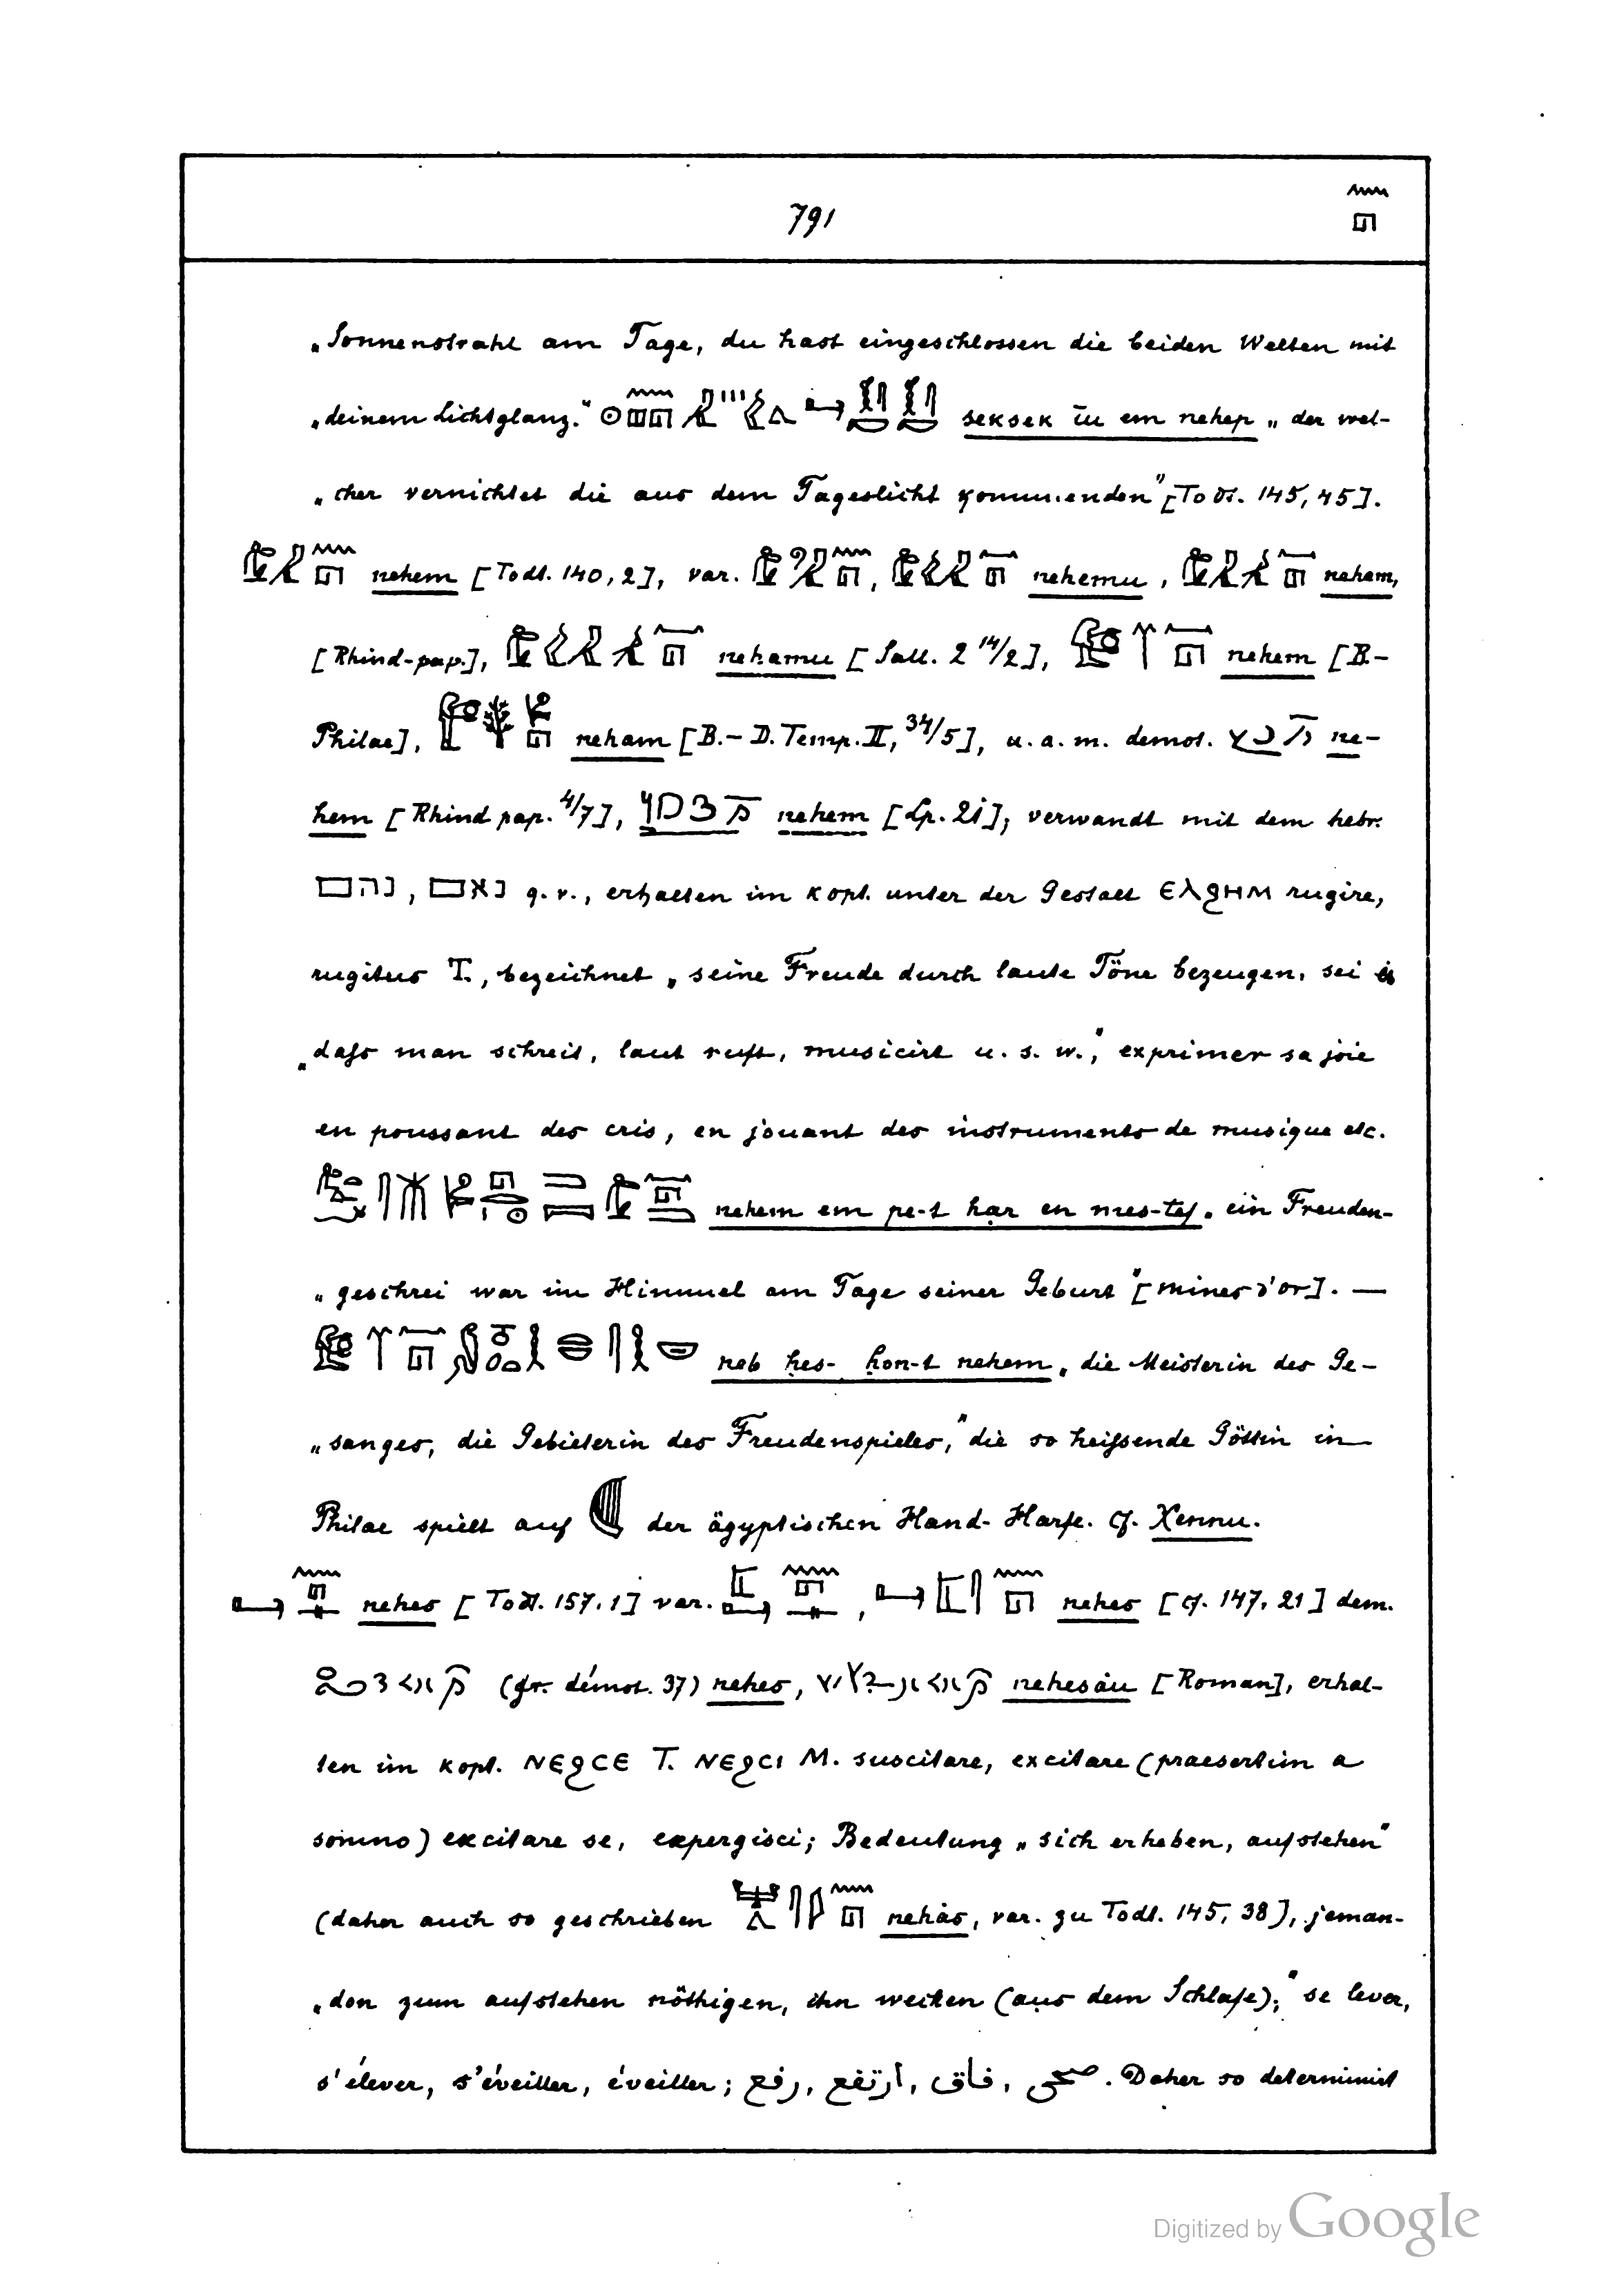 791
„Sonnenstrahl am Tage, du hast eingeschlossen die beiden Welten mit
„deinem Lichtglanz.“ seksek īu em nehep „der wel-
„cher vernichtet die aus dem Tageslicht kommenden“ [Todt. 145, 45].
nehem [Todt. 140, 2], var. , nehemu, nehem,
[Rhind-pap.], nehamu [Sall. 2 14/2], nehem [B.-
Philae], neham [B.-D. Temp. II, 34/5], u. a. m. demot. ne-
hem [Rhind pap. 4/7], nehem [Lp. 2i]; verwandt mit dem hebr.
נהם, נאם q. v., erhalten im kopt. unter der Gestalt ⲉⲗϩⲏⲙ rugire,
rugitus T., bezeichnet „seine Freude durch laute Töne bezeugen, sei es
„daſs man schreit, laut ruft, musicirt u. s. w.“, exprimer sa joie
en poussant des cris, en jouant des instruments de musique etc.
nehem em pe-t har en mes-tef „ein Freuden-
„geschrei war im Himmel am Tage seiner Geburt“ [mines d'or]. —
neb ḥes- ḥon-t nehem „die Meisterin des Ge-
„sanges, die Gebieterin des Freudenspieles,“ die so heiſsende Göttin in
Philae spielt auf der ägyptischen Hand-Harfe. cf. Xennu.
nehes [Todt. 157, 1] var. , nehes [cf. 147, 21] dem.
(gr. démot. 37) nehes, nehesàu [Roman], erhal-
ten im kopt. ⲛⲉϩⲥⲉ T. ⲛⲉϩⲥⲓ M. suscitare, excitare (praesertim a
somno) excitare se, expergisci; Bedeutung „sich erheben, aufstehen“
(daher auch so geschrieben nehàs, var. zu Todt. 145, 38), jeman-
„den zum aufstehen nöthigen, ihn wecken (aus dem Schlafe);“ se lever,
s'élever, s'éveiller, éveiller; رفع, ارتفع, فاق, صحى. Daher so determinirt
Digitized by Google